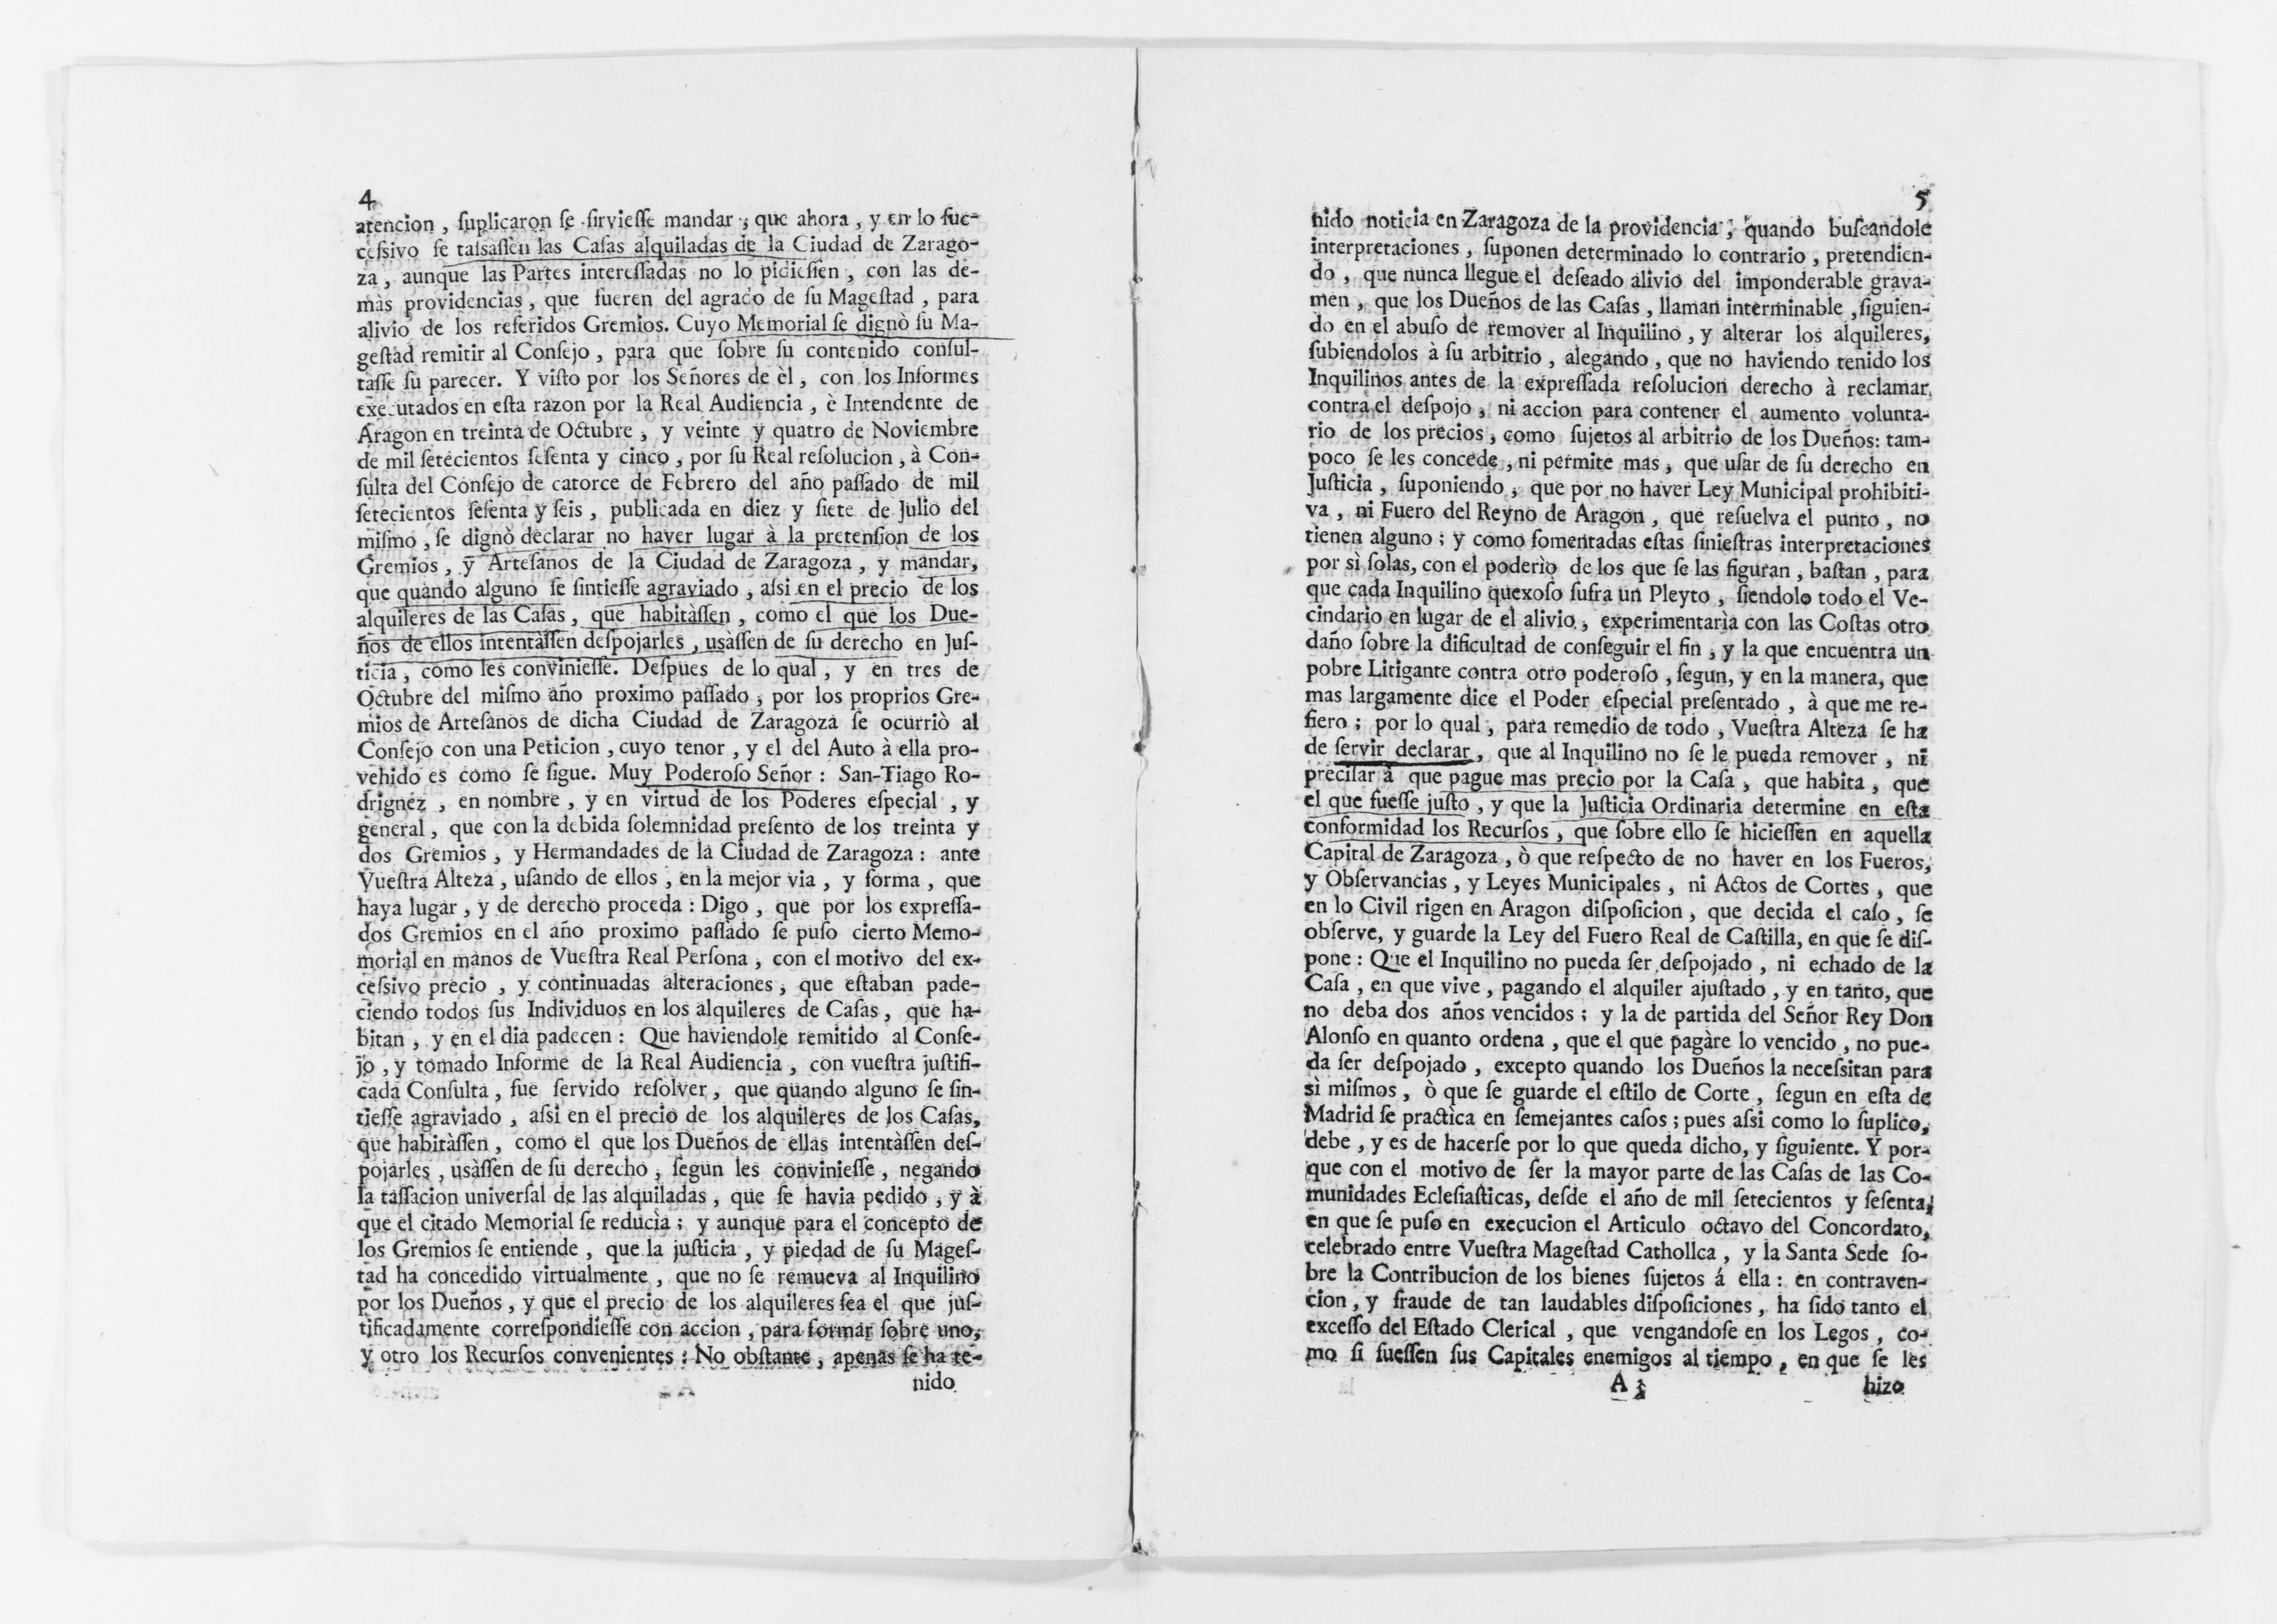 4
atencion, ſuplicaron ſe ſirvieſſe mandar; que ahora, y en lo ſuc-
ceſsivo ſe taſsaſſen las Caſas alquiladas de la Ciudad de Zarago-
za, aunque las Partes intereſſadas no lo pidieſſen, con las de-
màs providencias, que fueren del agrado de ſu Mageſtad, para
alivio de los referidos Gremios. Cuyo Memorial ſe dignò ſu Ma-
geſtad remitir al Conſejo, para que ſobre ſu contenido conſul-
taſſe ſu parecer. Y viſto por los Señores de èl, con los Informes
executados en eſta razon por la Real Audiencia, è Intendente de
Aragon en treinta de Octubre, y veinte y quatro de Noviembre
de mil ſetecientos ſeſenta y cinco, por ſu Real reſolucion, à Con-
ſulta del Conſejo de catorce de Febrero del año paſſado de mil
ſetecientos ſeſenta y ſeis, publicada en diez y ſiete de Julio del
miſmo, ſe dignò declarar no haver lugar à la pretenſion de los
Gremios, y Arteſanos de la Ciudad de Zaragoza, y mandar,
que quando alguno ſe ſintieſſe agraviado, aſsi en el precio de los
alquileres de las Caſas, que habitàſſen, como el que los Due-
ños de ellos intentàſſen deſpojarles, uſàſſen de ſu derecho en Juſ-
ticia, como les convinieſſe. Deſpues de lo qual, y en tres de
Octubre del miſmo año proximo paſſado, por los proprios Gre-
mios de Arteſanos de dicha Ciudad de Zaragoza ſe ocurriò al
Conſejo con una Peticion, cuyo tenor, y el del Auto à ella pro-
vehido es como ſe ſigue. Muy Poderoſo Señor: San-Tiago Ro-
drignez, en nombre, y en virtud de los Poderes eſpecial, y
general, que con la debida ſolemnidad preſento de los treinta y
dos Gremios, y Hermandades de la Ciudad de Zaragoza: ante
Vueſtra Alteza, uſando de ellos, en la mejor via, y forma, que
haya lugar, y de derecho proceda: Digo, que por los expreſſa-
dos Gremios en el año proximo paſſado ſe puſo cierto Memo-
morial en manos de Vueſtra Real Perſona, con el motivo del ex-
ceſsivo precio, y continuadas alteraciones, que eſtaban pade-
ciendo todos ſus Individuos en los alquileres de Caſas, que ha-
bitan, y en el dia padecen: Que haviendole remitido al Conſe-
jo, y tomado Informe de la Real Audiencia, con vueſtra juſtifi-
cada Conſulta, fue ſervido reſolver, que quando alguno ſe ſin-
tieſſe agraviado, aſsi en el precio de los alquileres de los Caſas,
que habitàſſen, como el que los Dueños de ellas intentàſſen deſ-
pojarles, uſàſſen de ſu derecho, ſegun les convinieſſe, negando
la taſſacion univerſal de las alquiladas, que ſe havia pedido, y à
que el citado Memorial ſe reducìa; y aunque para el concepto de
los Gremios ſe entiende, que la juſticia, y piedad de ſu Mageſ-
tad ha concedido virtualmente, que no ſe remueva al Inquilino
por los Dueños, y que el precio de los alquileres ſea el que juſ-
tificadamente correſpondieſſe con accion, para formar ſobre uno,
y otro los Recurſos convenientes: No obſtante, apenas ſe ha te-
nido
5
nido noticia en Zaragoza de la providencia, quando buſcandole
interpretaciones, ſuponen determinado lo contrario, pretendien-
do, que nunca llegue el deſeado alivio del imponderable grava-
men, que los Dueños de las Caſas, llaman interminable, ſiguien-
do en el abuſo de remover al Inquilino, y alterar los alquileres,
ſubiendolos à ſu arbitrio, alegando, que no haviendo tenido los
Inquilinos antes de la expreſſada reſolucion derecho à reclamar
contra el deſpojo, ni accion para contener el aumento volunta-
rio de los precios, como ſujetos al arbitrio de los Dueños: tam-
poco ſe les concede, ni permite mas, que uſar de ſu derecho en
Juſticia, ſuponiendo, que por no haver Ley Municipal prohibiti-
va, ni Fuero del Reyno de Aragon, que reſuelva el punto, no
tienen alguno; y como fomentadas eſtas ſinieſtras interpretaciones
por sì ſolas, con el poderìo de los que ſe las figuran, baſtan, para
que cada Inquilino quexoſo ſufra un Pleyto, ſiendolo todo el Ve-
cindario en lugar de el alivio, experimentarìa con las Coſtas otro
daño ſobre la dificultad de conſeguir el fin, y la que encuentra un
pobre Litigante contra otro poderoſo, ſegun, y en la manera, que
mas largamente dice el Poder eſpecial preſentado, à que me re-
fiero; por lo qual, para remedio de todo, Vueſtra Alteza ſe ha
de ſervir declarar, que al Inquilino no ſe le pueda remover, ni
preciſar à que pague mas precio por la Caſa, que habita, que
el que fueſſe juſto, y que la Juſticia Ordinaria determine en eſta
conformidad los Recurſos, que ſobre ello ſe hicieſſen en aquella
Capital de Zaragoza, ò que reſpecto de no haver en los Fueros,
y Obſervancias, y Leyes Municipales, ni Actos de Cortes, que
en lo Civil rigen en Aragon diſpoſicion, que decida el caſo, ſe
obſerve, y guarde la Ley del Fuero Real de Caſtilla, en que ſe diſ-
pone: Que el Inquilino no pueda ſer deſpojado, ni echado de la
Caſa, en que vive, pagando el alquiler ajuſtado, y en tanto, que
no deba dos años vencidos; y la de partida del Señor Rey Don
Alonſo en quanto ordena, que el que pagàre lo vencido, no pue-
da ſer deſpojado, excepto quando los Dueños la neceſsitan para
sì miſmos, ò que ſe guarde el eſtilo de Corte, ſegun en eſta de
Madrid ſe practìca en ſemejantes caſos; pues aſsi como lo ſuplico,
debe, y es de hacerſe por lo que queda dicho, y ſiguiente. Y por-
que con el motivo de ſer la mayor parte de las Caſas de las Co-
munidades Ecleſiaſticas, deſde el año de mil ſetecientos y ſeſenta,
en que ſe puſo en execucion el Articulo octavo del Concordato,
celebrado entre Vueſtra Mageſtad Cathollca, y la Santa Sede ſo-
bre la Contribucion de los bienes ſujetos á ella: en contraven-
cion, y fraude de tan laudables diſpoſiciones, ha ſido tanto el
exceſſo del Eſtado Clerical, que vengandoſe en los Legos, co-
mo ſi fueſſen ſus Capitales enemigos al tiempo, en que ſe les
A 3 hizo